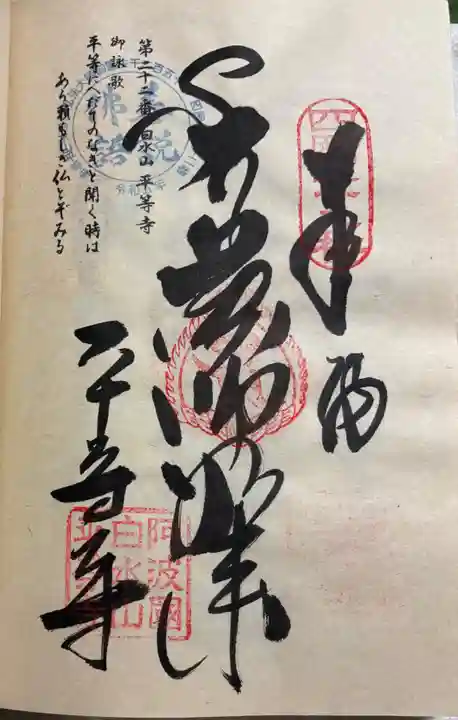 奉
四国第二十二番
薬師如来
第二十二番 白水山 平等寺
御詠歌
平等にへだてのなきと聞く時は
あら頼もしき仏とぞみる
平等寺
阿波國
白水山
平等寺